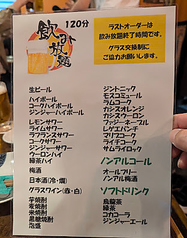 飲み放題
120分
ラストオーダーは
飲み放題終了時間です。
グラス交換制に
ご協力お願いします。
生ビール
ハイボール
コークハイボール
ジンジャーハイボール
レモンサワー
ライムサワー
ラフランスサワー
コークサワー
ジンジャーサワー
ウーロンハイ
緑茶ハイ
梅酒
日本酒(冷・燗)
グラスワイン(赤・白)
芋焼酎
麦焼酎
米焼酎
黒糖焼酎
泡盛
ジントニック
モスコミュール
ラムコーク
カシスオレンジ
カシスウーロン
ファジーネーブル
レゲエパンチ
マリブコーク
ライチコーク
サムライロック
ノンアルコール
オールフリー
ノンアル梅酒
ソフトドリンク
烏龍茶
緑茶
コカコーラ
ジンジャーエール